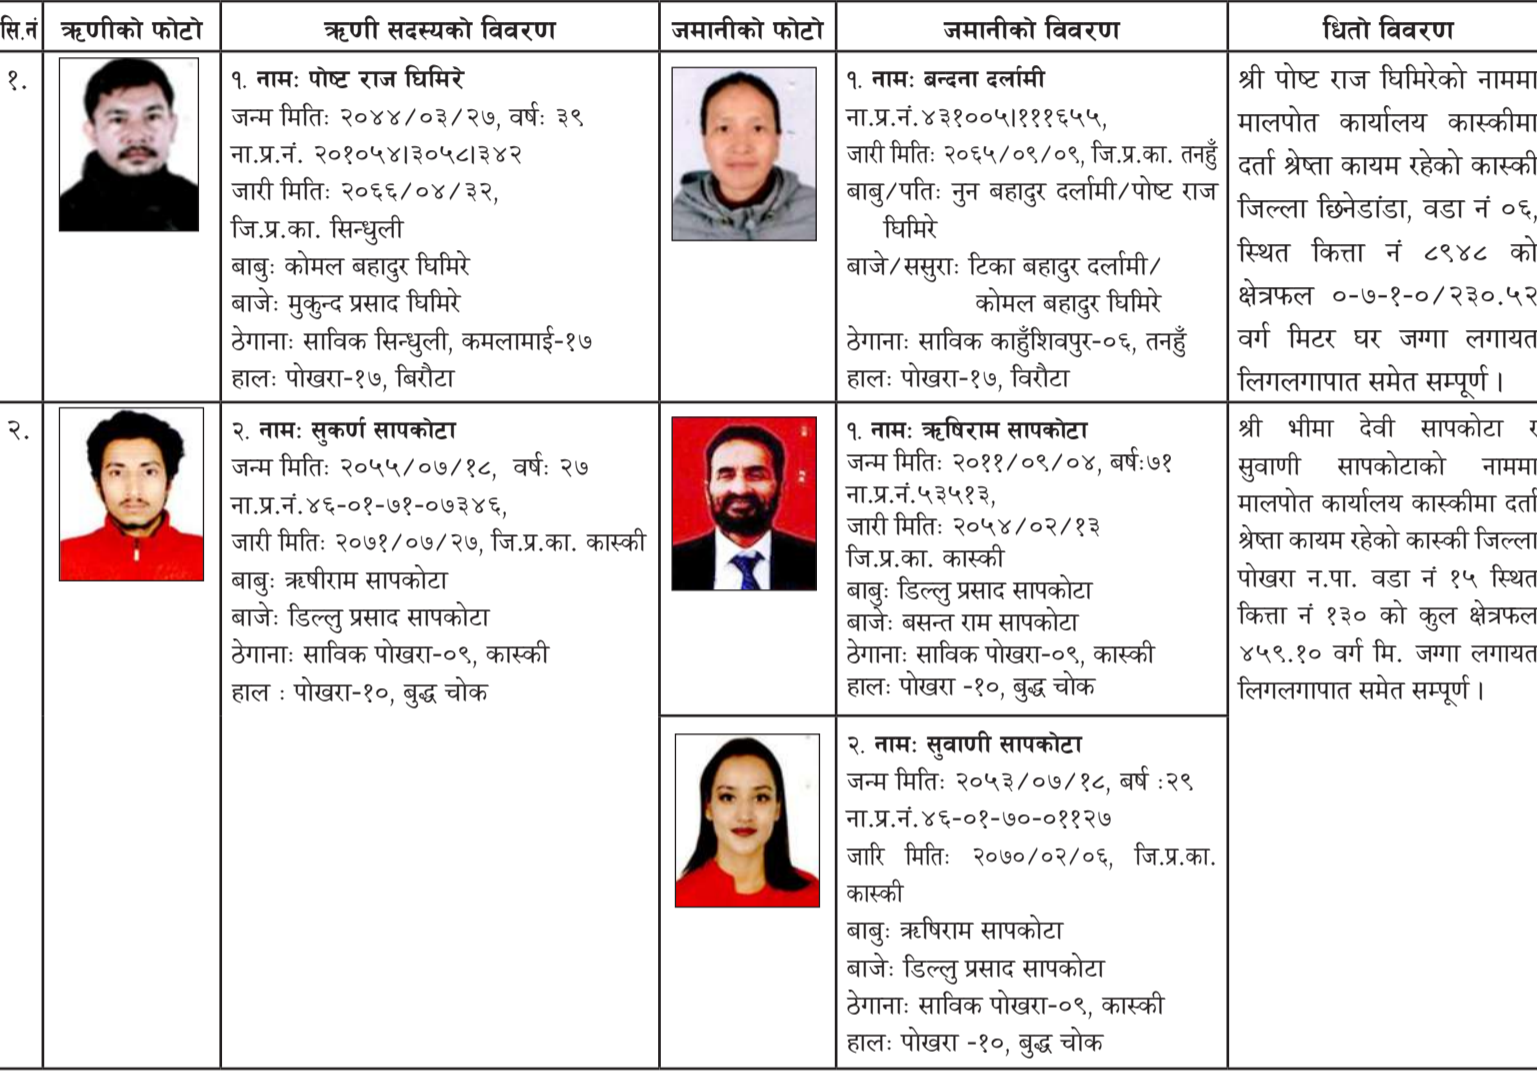 सि.नं
ऋणीको फोटो
ऋणी सदस्यको विवरण
जमानीको फोटो
जमानीको विवरण
धितो विवरण
१.
१. नामः पोष्ट राज घिमिरे
जन्म मितिः २०४४/०३/२७, वर्षः ३९
ना.प्र.नं. २०१०५४।३०५८।३४२
जारी मितिः २०६६/०४/३२,
जि.प्र.का. सिन्धुली
बाबुः कोमल बहादुर घिमिरे
बाजेः मुकुन्द प्रसाद घिमिरे
ठेगानाः साविक सिन्धुली, कमलामाई-१७
हालः पोखरा-१७, बिरौटा
१. नामः बन्दना दर्लामी
ना.प्र.नं.४३१००५।१११६५५,
जारी मितिः २०६५/०९/०९, जि.प्र.का. तनहुँ
बाबु/पतिः नुन बहादुर दर्लामी/पोष्ट राज
घिमिरे
बाजे/ससुराः टिका बहादुर दर्लामी/
कोमल बहादुर घिमिरे
ठेगानाः साविक काहुँशिवपुर-०६, तनहुँ
हालः पोखरा-१७, विरौटा
श्री पोष्ट राज घिमिरेको नाममा
मालपोत कार्यालय कास्कीमा
दर्ता श्रेष्ता कायम रहेको कास्की
जिल्ला छिनेडांडा, वडा नं ०६,
स्थित कित्ता नं ८९४८ को
क्षेत्रफल ०-७-१-०/२३०.५२
वर्ग मिटर घर जग्गा लगायत
लिगलगापात समेत सम्पूर्ण ।
२.
२. नामः सुकर्ण सापकोटा
जन्म मितिः २०५५/०७/१८, वर्षः २७
ना.प्र.नं.४६-०१-७१-०७३४६,
जारी मितिः २०७१/०७/२७, जि.प्र.का. कास्की
बाबुः ऋषीराम सापकोटा
बाजेः डिल्लु प्रसाद सापकोटा
ठेगानाः साविक पोखरा-०९, कास्की
हाल : पोखरा-१०, बुद्ध चोक
१. नामः ऋषिराम सापकोटा
जन्म मितिः २०११/०९/०४, बर्षः७१
ना.प्र.नं.५३५१३,
जारी मितिः २०५४/०२/१३
जि.प्र.का. कास्की
बाबुः डिल्लु प्रसाद सापकोटा
बाजेः बसन्त राम सापकोटा
ठेगानाः साविक पोखरा-०९, कास्की
हालः पोखरा -१०, बुद्ध चोक
श्री भीमा देवी सापकोटा र
सुवाणी सापकोटाको नाममा
मालपोत कार्यालय कास्कीमा दर्ता
श्रेष्ता कायम रहेको कास्की जिल्ला
पोखरा न.पा. वडा नं १५ स्थित
कित्ता नं १३० को कुल क्षेत्रफल
४५९.१० वर्ग मि. जग्गा लगायत
लिगलगापात समेत सम्पूर्ण ।
२. नामः सुवाणी सापकोटा
जन्म मितिः २०५३/०७/१८, बर्ष :२९
ना.प्र.नं.४६-०१-७०-०११२७
जारि मितिः २०७०/०२/०६, जि.प्र.का.
कास्की
बाबुः ऋषिराम सापकोटा
बाजेः डिल्लु प्रसाद सापकोटा
ठेगानाः साविक पोखरा-०९, कास्की
हालः पोखरा -१०, बुद्ध चोक